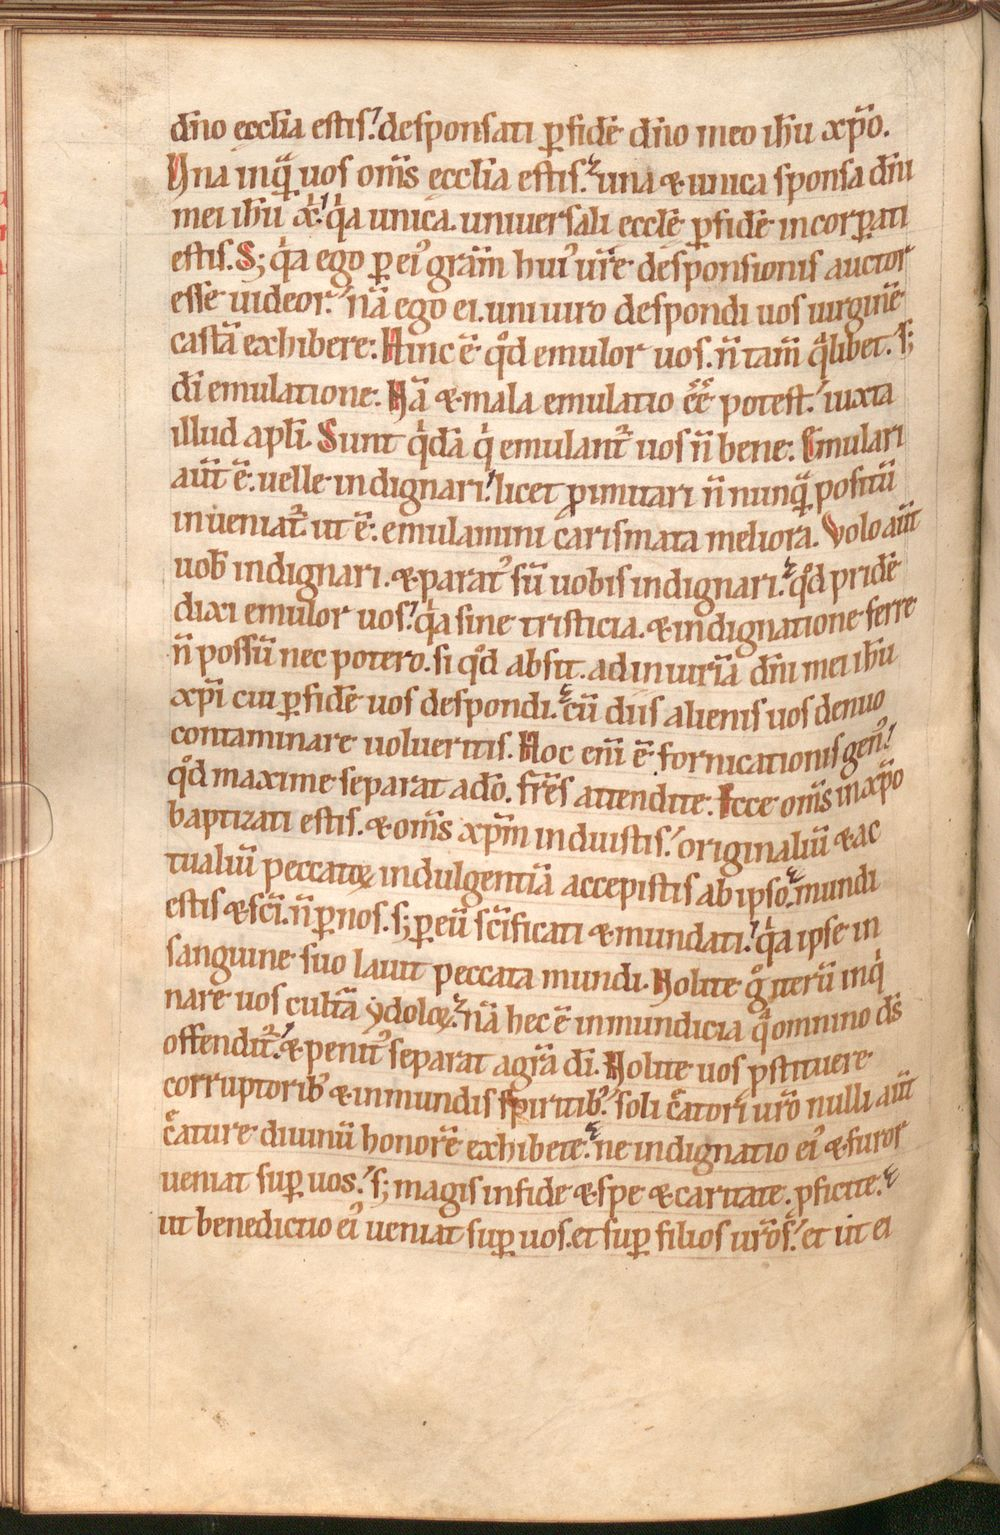 dñо eccl̄ia estis. desponsati ꝑ fidē dño meo ih̄u xp̄o.
Vna inqͣ uos om̄s eccl̄ia estis. una & unica sponsa dn̄i
mei ih̄u x̄. qͥa unica. uniuersali eccl̄e ꝑ fidē incorꝑati
estis. S; qͥa ego ꝑ ei᷒ grām hui᷒ ur̄e desponsionis auctor
esse uideor. nā ego ei. uni uiro despondi uos uirginē
castā exhibere. Hinc ē qͦd emulor uos. n̄ tam̄ qͣlibet. s;
dī emulatione. Nā & mala emulatio ēē potest. iuxta
illud apl̄i. Sunt qͥdā qͥ emulant᷑ uos n̄ bene. Emulari
aut̄ ē. uelle indignari. licet ꝓ imitari n̄ nunqͣ positū
inueniat᷑. ut ē. emulamini carismata meliora. Volo aut̄
uob̄ indignari. & parat᷒ sū uobis indignari. qͦd pridē
dixi emulor uos. qͥa sine tristicia. & indignatione ferre
n̄ possū nec potero. si qͦd absit. ad iniuriā dn̄i mei ih̄u
xp̄i cui ꝑ fidē uos despondi. cū diis alienis uos denuo
contaminare uolueritis. Hoc eni̅ ē fornicationis gen᷒.
qͦd maxime separat a dō. frēs attendite. Ecce om̄s in xp̄o
baptizati estis. & om̄s xp̄m induistis. originaliū & ac
tualiū peccatoꝝ indulgentiā accepistis ab ipso. mundi
estis & sc̄i. n̄ ꝑ nos. s; ꝑ eū sc̄ificati & mundati. qͥa ipse in
sanguine suo lauit peccata mundi. Nolite gͦ iterū inqͥ
nare uos cultā ydoloꝝ. nā hec ē inmundicia qͣ omnino ds̄
offendit᷑. & penit᷒ separat a gr̄a dī. Nolite uos ꝓstituere
corruptorib᷒ & inmundis spiritib᷒. soli cͤatori ur̄o nulli aut̄
cͤature diuinū honorē exhibete. ne indignatio ei᷒ & furor
ueniat suꝑ uos. s; magis in fide & spe & caritate. ꝓficite.
ut benedictio ei᷒ ueniat suꝑ uos. et suꝑ filios ur̄os. et ut ei